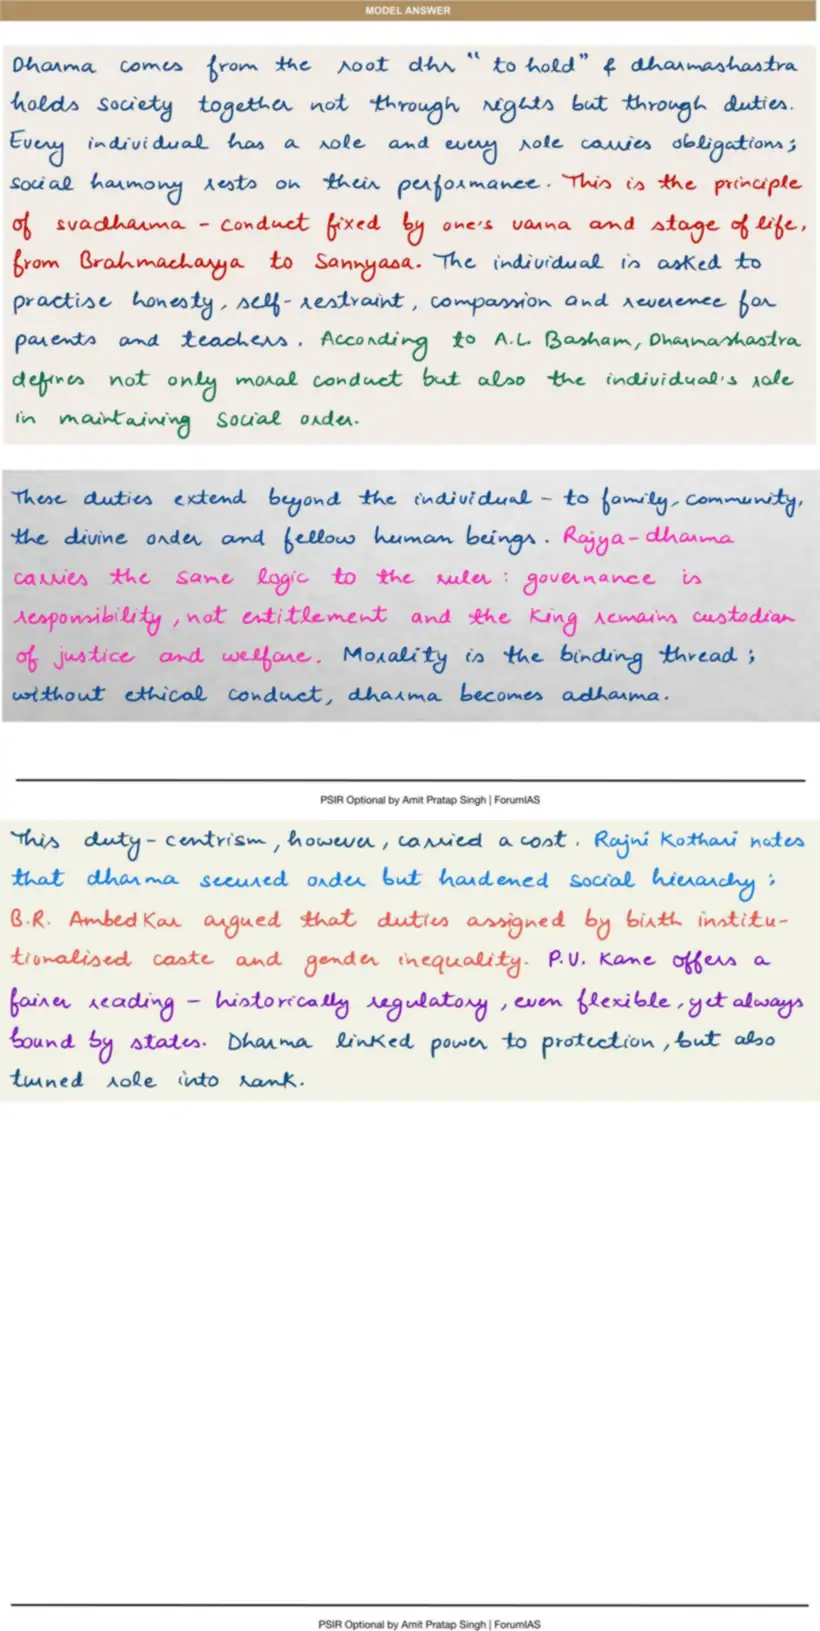 MODEL ANSWER
Dharma comes from the root dhr "to hold" & dharmashastra
holds society together not through rights but through duties.
Every individual has a role and every role carries obligations;
social harmony rests on their performance. This is the principle
of svadharma - conduct fixed by one's varna and stage of life,
from Brahmacharya to Sannyasa. The individual is asked to
practise honesty, self-restraint, compassion and reverence for
parents and teachers. According to A.L. Basham, Dharmashastra
defines not only moral conduct but also the individual's role
in maintaining social order.
These duties extend beyond the individual - to family, community,
the divine order and fellow human beings. Rajya-dharma
carries the same logic to the ruler: governance is
responsibility, not entitlement and the King remains custodian
of justice and welfare. Morality is the binding thread;
without ethical conduct, dharma becomes adharma.
PSIR Optional by Amit Pratap Singh | ForumIAS
This duty-centrism, however, carried a cost. Rajni Kothari notes
that dharma secured order but hardened social hierarchy;
B.R. Ambedkar argued that duties assigned by birth institu-
tionalised caste and gender inequality. P.V. Kane offers a
fairer reading - historically regulatory, even flexible, yet always
bound by states. Dharma linked power to protection, but also
turned role into rank.
PSIR Optional by Amit Pratap Singh | ForumIAS